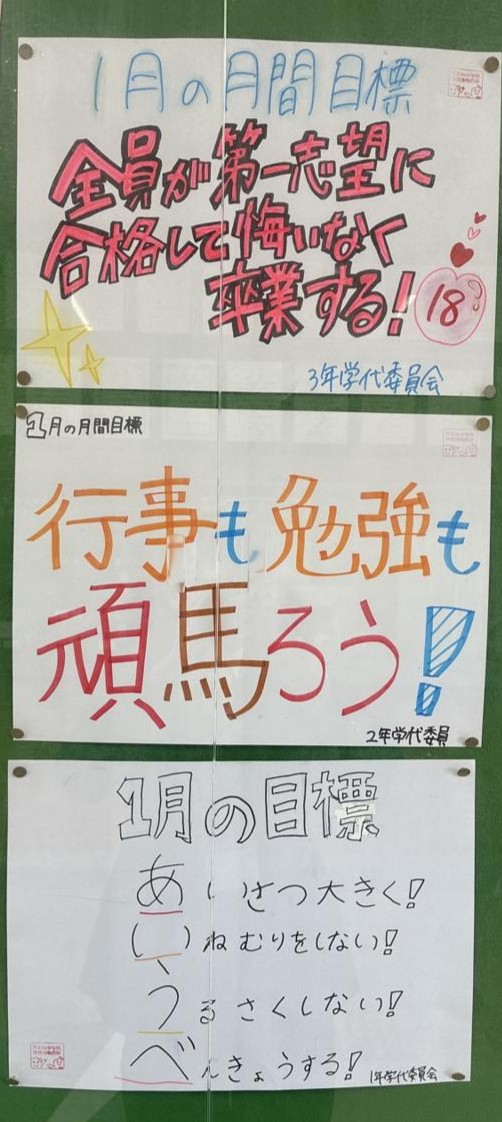 1月の月間目標
全員が第一志望に
合格して悔いなく
卒業する!
18
3年学代委員会
1月の月間目標
行事も勉強も
頑馬ろう!
2年学代委員
1月の目標
あいさつ大きく!
いねむりをしない!
うるさくしない!
べんきょうする!
1年学代委員会